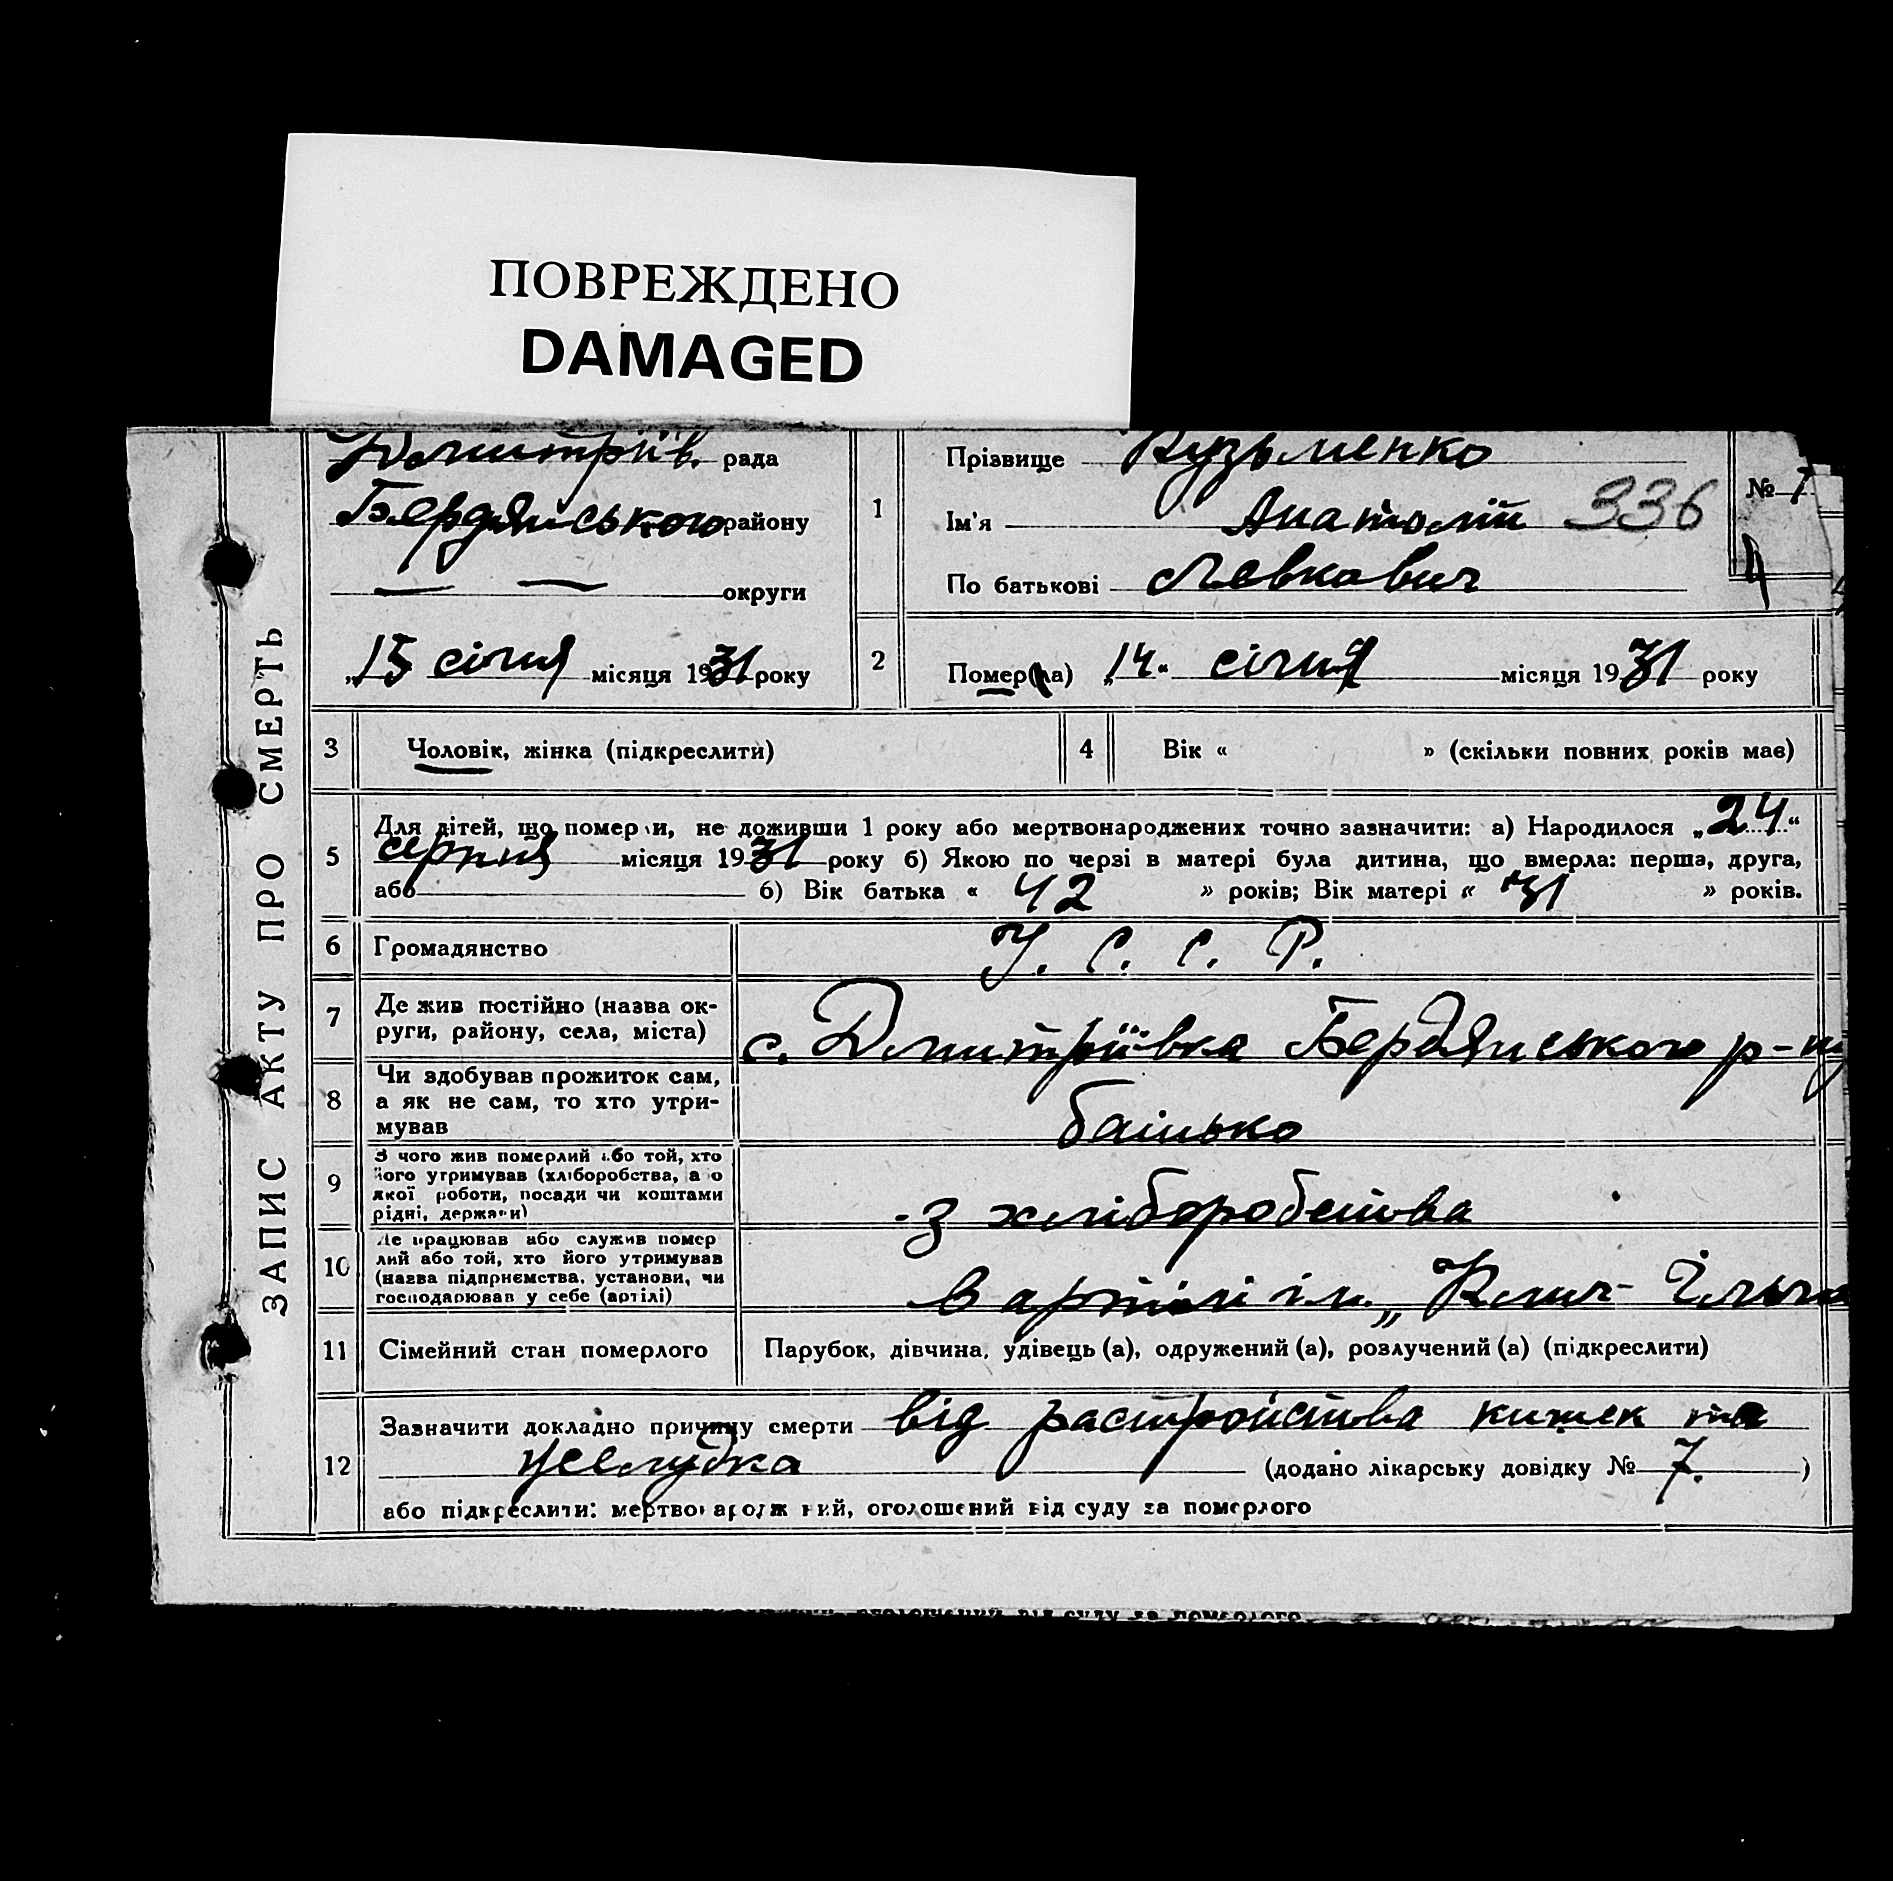 ПОВРЕЖДЕНО
DAMAGED
ЗАПИС АКТУ ПРО СМЕРТЬ
Дмитріїв. рада
Бердянського району
— — округи
„15 січня місяця 1931 року
1
Прізвище Кузьменко
Ім'я Анатолій 336
По батькові Левкович
№
2
Помер(ла) „14“ січня місяця 1931 року
3 Чоловік, жінка (підкреслити)
4 Вік « » (скільки повних років має)
5 Для дітей, що померли, не доживши 1 року або мертвонароджених точно зазначити: а) Народилося „24“
серпня місяця 1931 року б) Якою по черзі в матері була дитина, що вмерла: перша, друга,
або б) Вік батька « 42 » років; Вік матері « 31 » років.
6 Громадянство У. С. С. Р.
7 Де жив постійно (назва ок-
руги, району, села, міста) с. Дмитріївка Бердянського р-ну
8 Чи здобував прожиток сам,
а як не сам, то хто утри-
мував батько
9 З чого жив померлий або той, хто
його утримував (хліборобства, з
якої роботи, посади чи коштами
рідні, держави) з хліборобства
10 Де працював або служив помер
лий або той, хто його утримував
(назва підприємства, установи, чи
господарював у себе (артілі) в артілі ім. „ Ілліча
11 Сімейний стан померлого Парубок, дівчина, удівець (а), одружений (а), розлучений (а) (підкреслити)
12 Зазначити докладно причину смерти від растройства кишек та
желудка (додано лікарську довідку № 7.)
або підкреслити: мертвонароджений, оголошений від суду за померлого
оголошений від суду за померлого